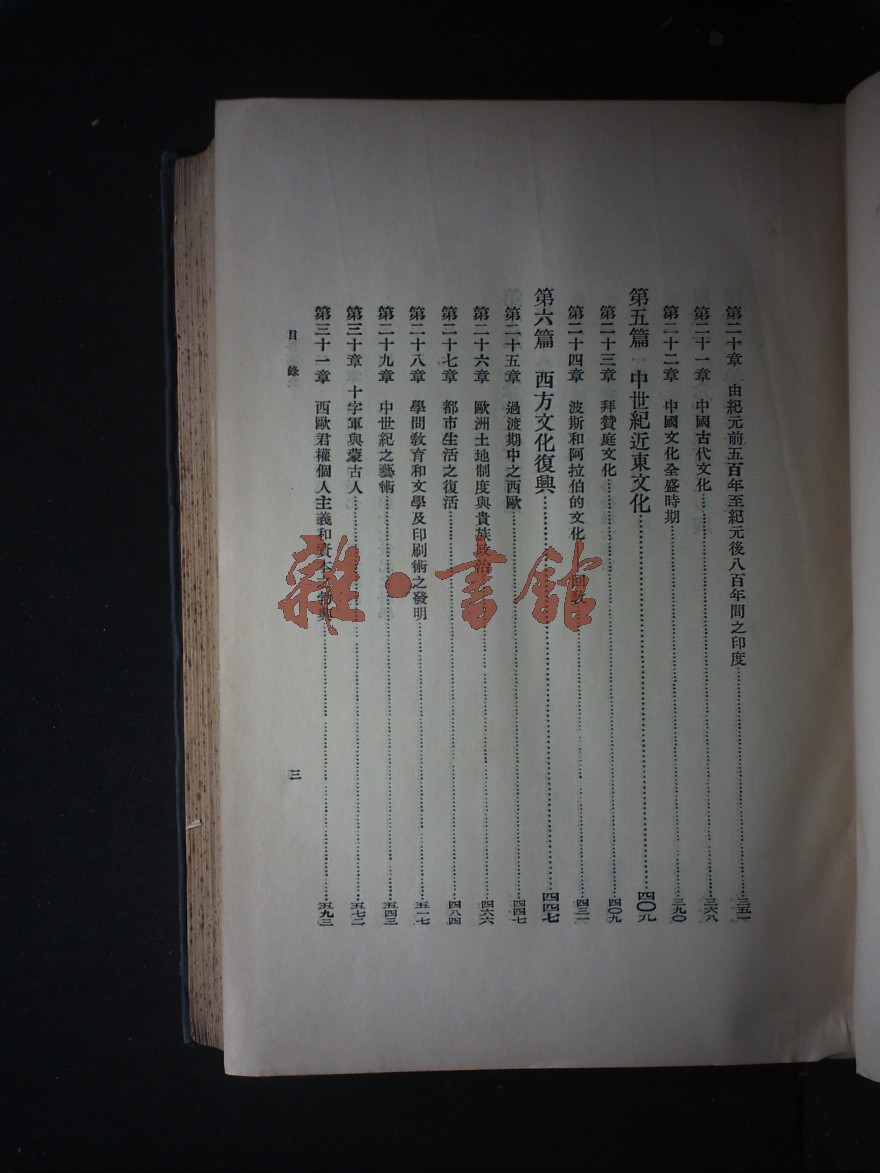 第二十章 由紀元前五百年至紀元後八百年間之印度……三五一
第二十一章 中國古代文化……三六八
第二十二章 中國文化全盛時期……三九〇
第五篇 中世紀近東文化……四〇九
第二十三章 拜贊庭文化……四〇九
第二十四章 波斯和阿拉伯的文化——回教……四三一
第六篇 西方文化復興……四四七
第二十五章 過渡期中之西歐……四四七
第二十六章 歐洲土地制度與貴族政治……四六六
第二十七章 都市生活之復活……四八四
第二十八章 學問教育和文學及印刷術之發明……五一七
第二十九章 中世紀之藝術……五四三
第三十章 十字軍與蒙古人……五七二
第三十一章 西歐君權個人主義和資本之勃興……五九三
目錄
三
雜·書館